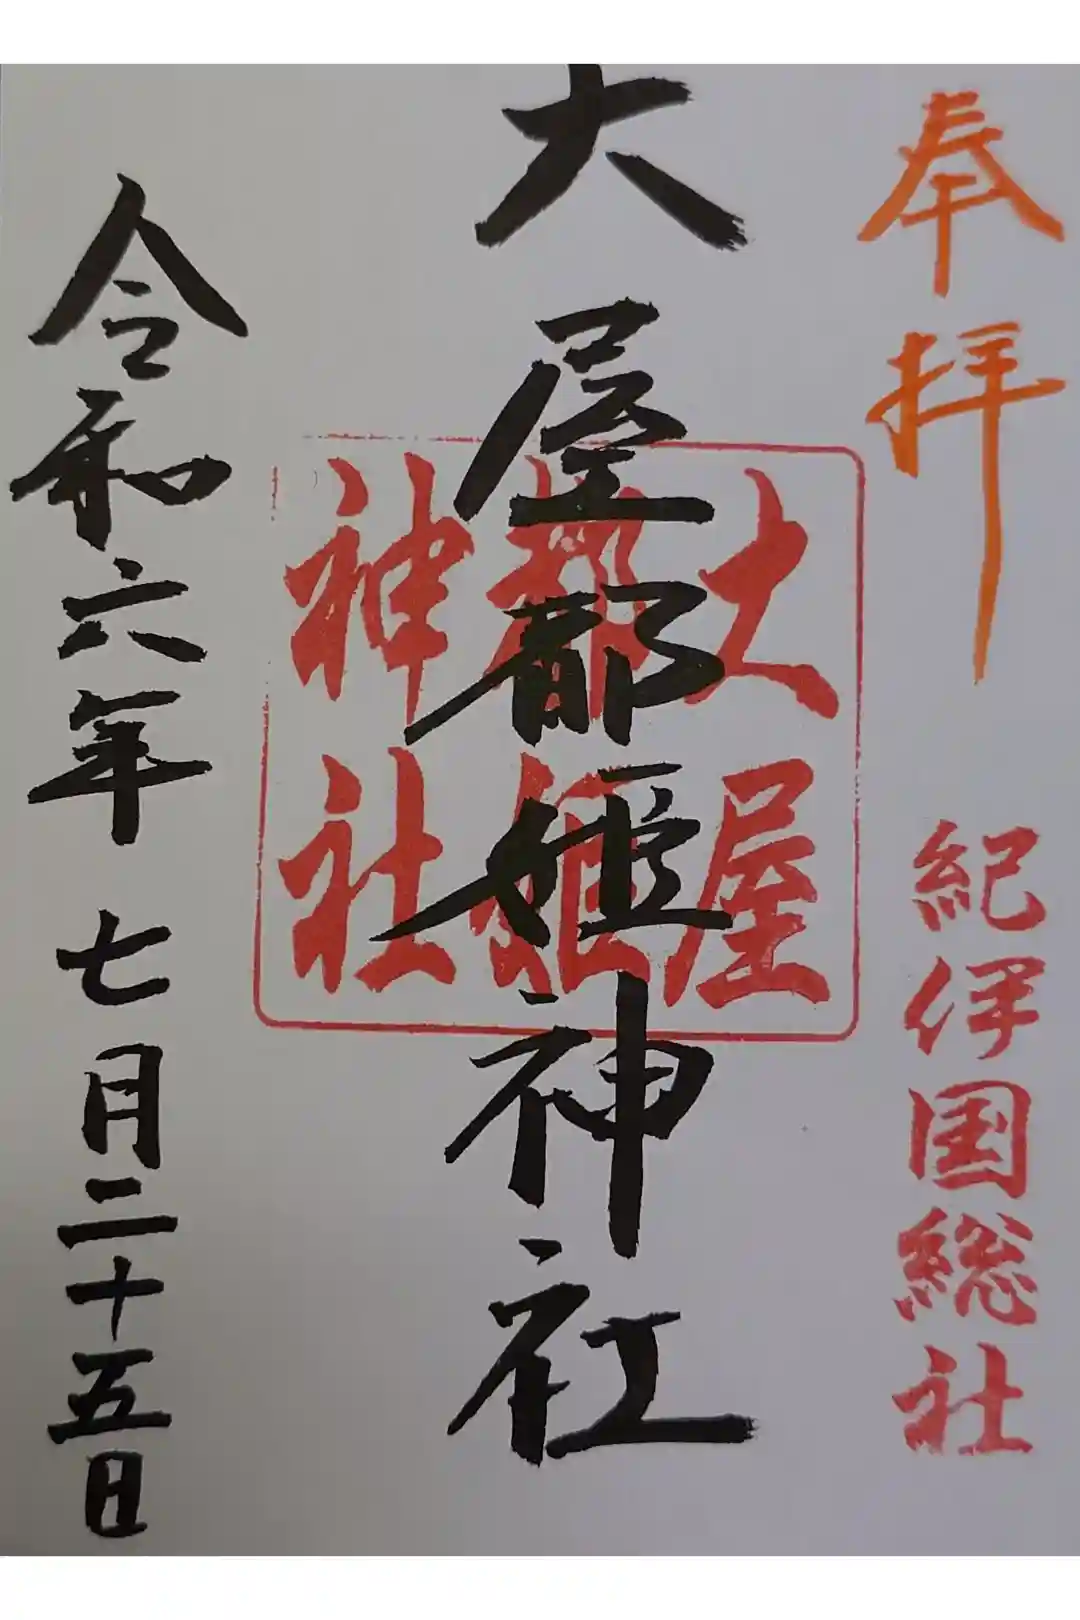 奉拝
紀伊国総社
大屋都姫神社
大屋
都姫
神社
令和六年 七月二十五日